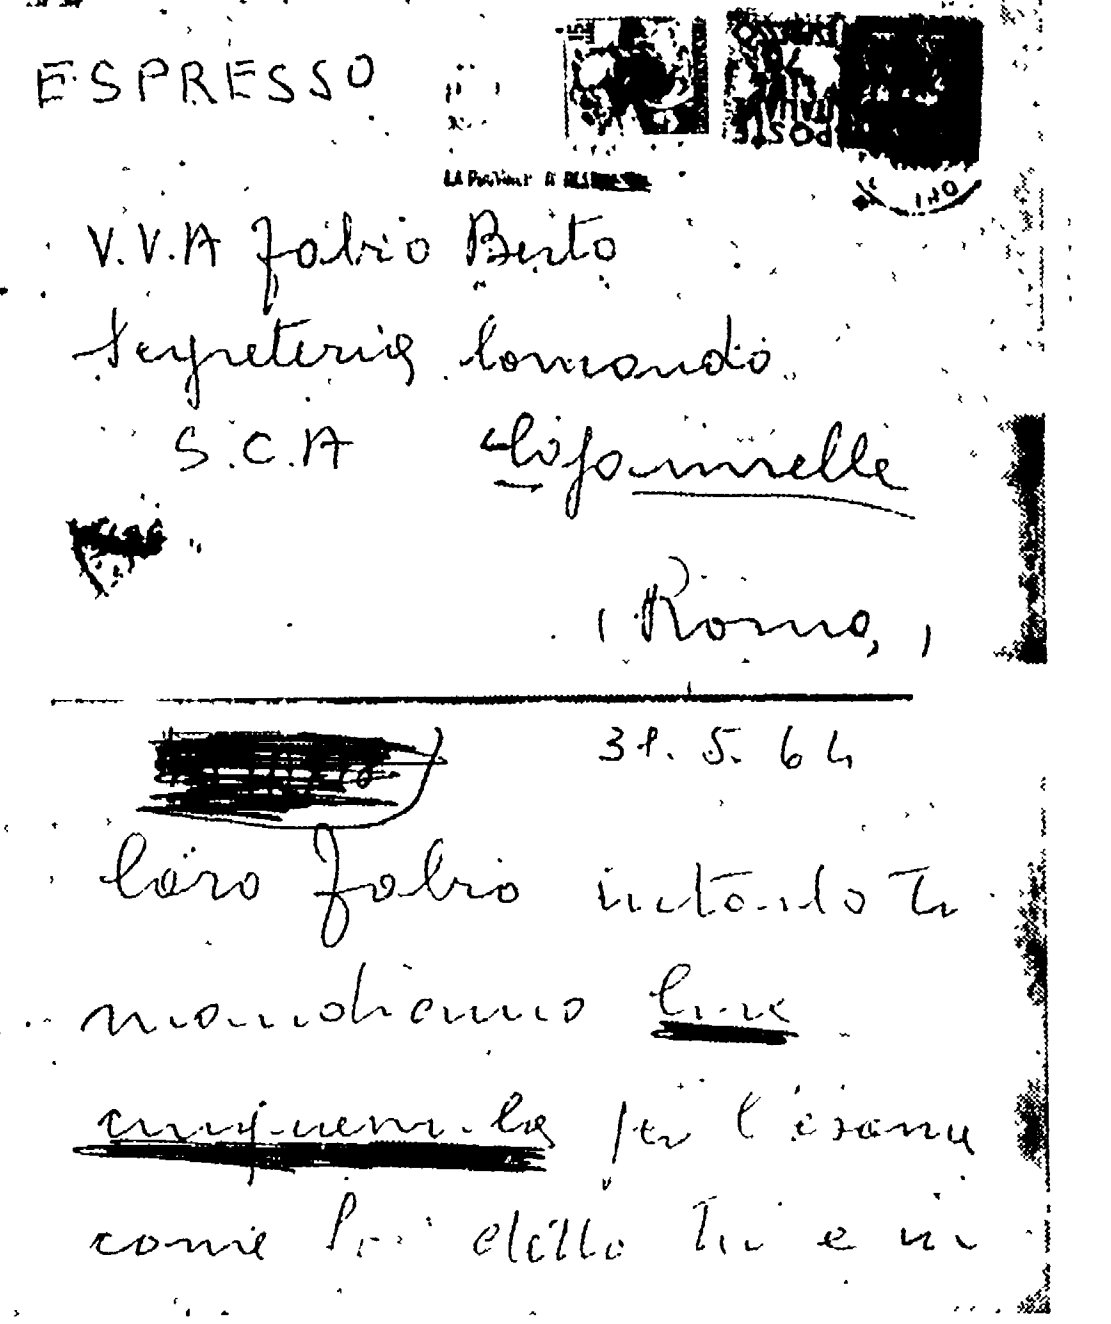 ESPRESSO
POSTE
ITALIA
V.V.A Fabio Berto
Segreteria Comando
S.C.A Capannelle
(Roma)
31.5.64
Caro Fabio intanto Ti
mandiamo Lire
cinquemila per l'esame
come hai detto Tu e in